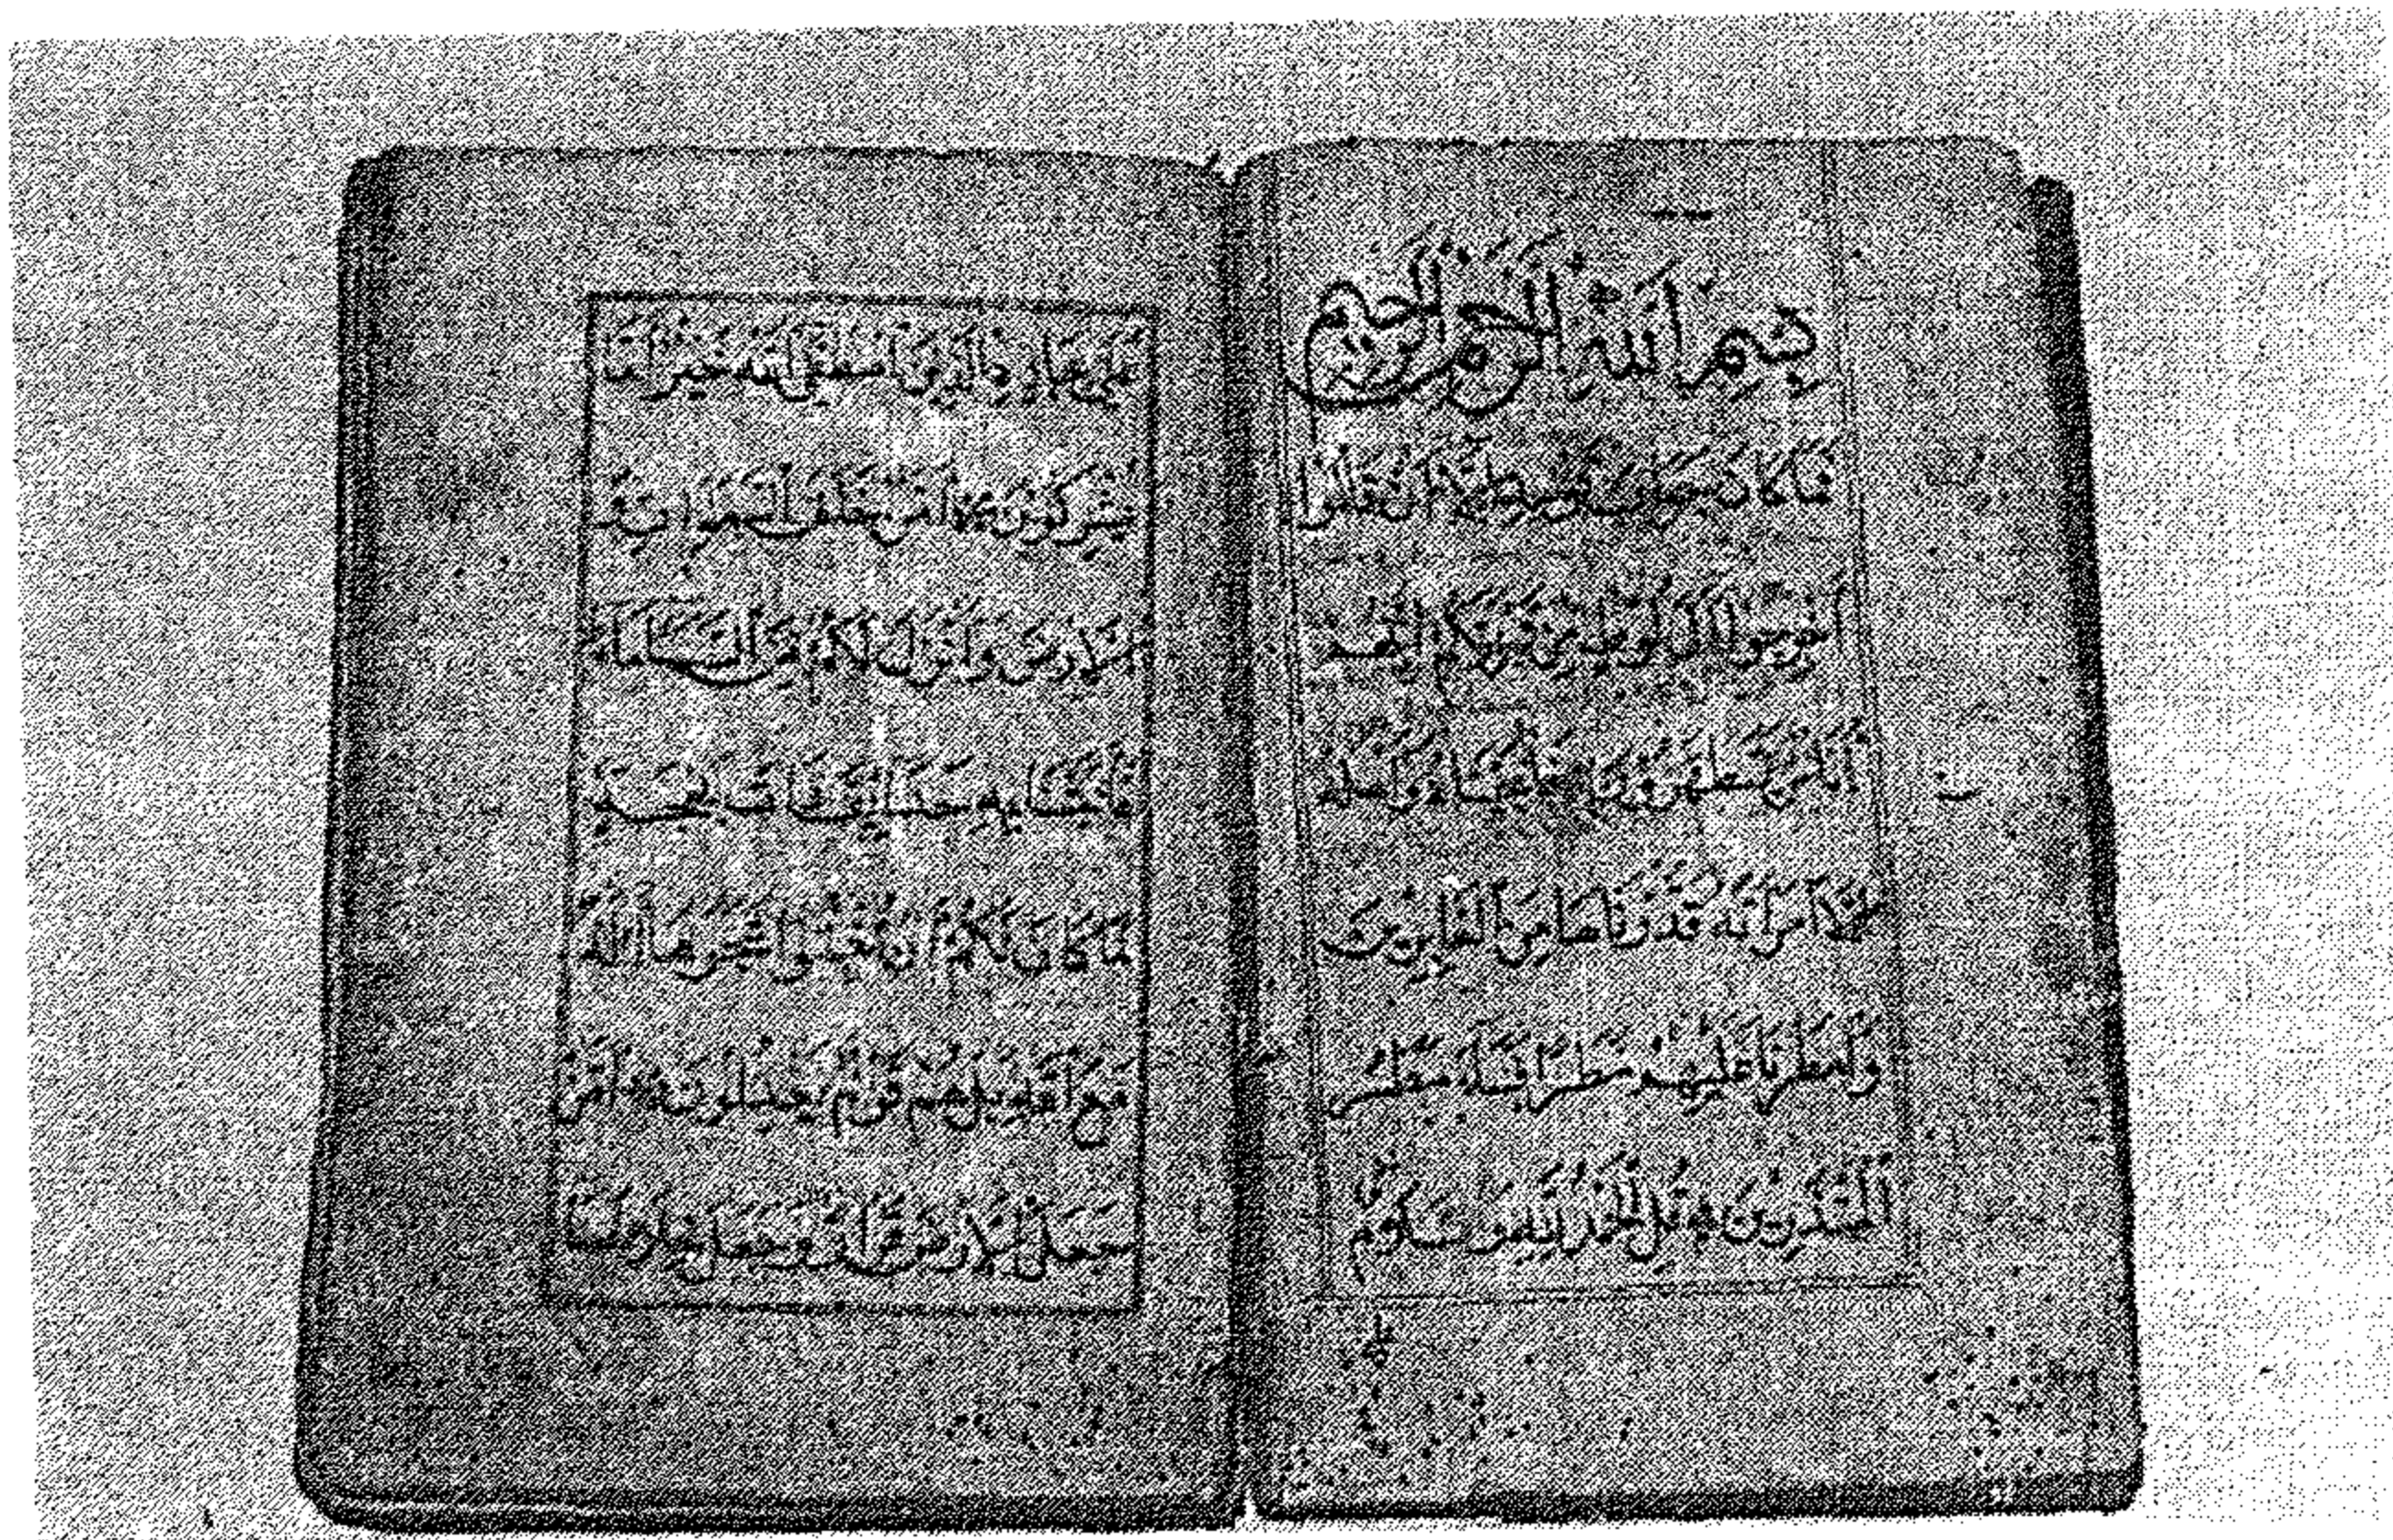 بِسْمِ اللَّهِ الرَّحْمَنِ الرَّحِيمِ
فَمَا كَانَ جَوَابَ قَوْمِهِ إِلَّا أَنْ قَالُوا
أَخْرِجُوا آلَ لُوطٍ مِنْ قَرْيَتِكُمْ إِنَّهُمْ
أُنَاسٌ يَتَطَهَّرُونَ فَأَنْجَيْنَاهُ وَأَهْلَهُ
إِلَّا امْرَأَتَهُ قَدَّرْنَاهَا مِنَ الْغَابِرِينَ
وَأَمْطَرْنَا عَلَيْهِمْ مَطَرًا فَسَاءَ مَطَرُ
الْمُنْذَرِينَ قُلِ الْحَمْدُ لِلَّهِ وَسَلَامٌ
عَلَى عِبَادِهِ الَّذِينَ اصْطَفَى آللَّهُ خَيْرٌ أَمَّا
يُشْرِكُونَ أَمَّنْ خَلَقَ السَّمَوَاتِ وَ
الْأَرْضَ وَأَنْزَلَ لَكُمْ مِنَ السَّمَاءِ مَاءً
فَأَنْبَتْنَا بِهِ حَدَائِقَ ذَاتَ بَهْجَةٍ
مَا كَانَ لَكُمْ أَنْ تُنْبِتُوا شَجَرَهَا أَإِلَهٌ
مَعَ اللَّهِ بَلْ هُمْ قَوْمٌ يَعْدِلُونَ أَمَّنْ
جَعَلَ الْأَرْضَ قَرَارًا وَجَعَلَ خِلَالَهَا